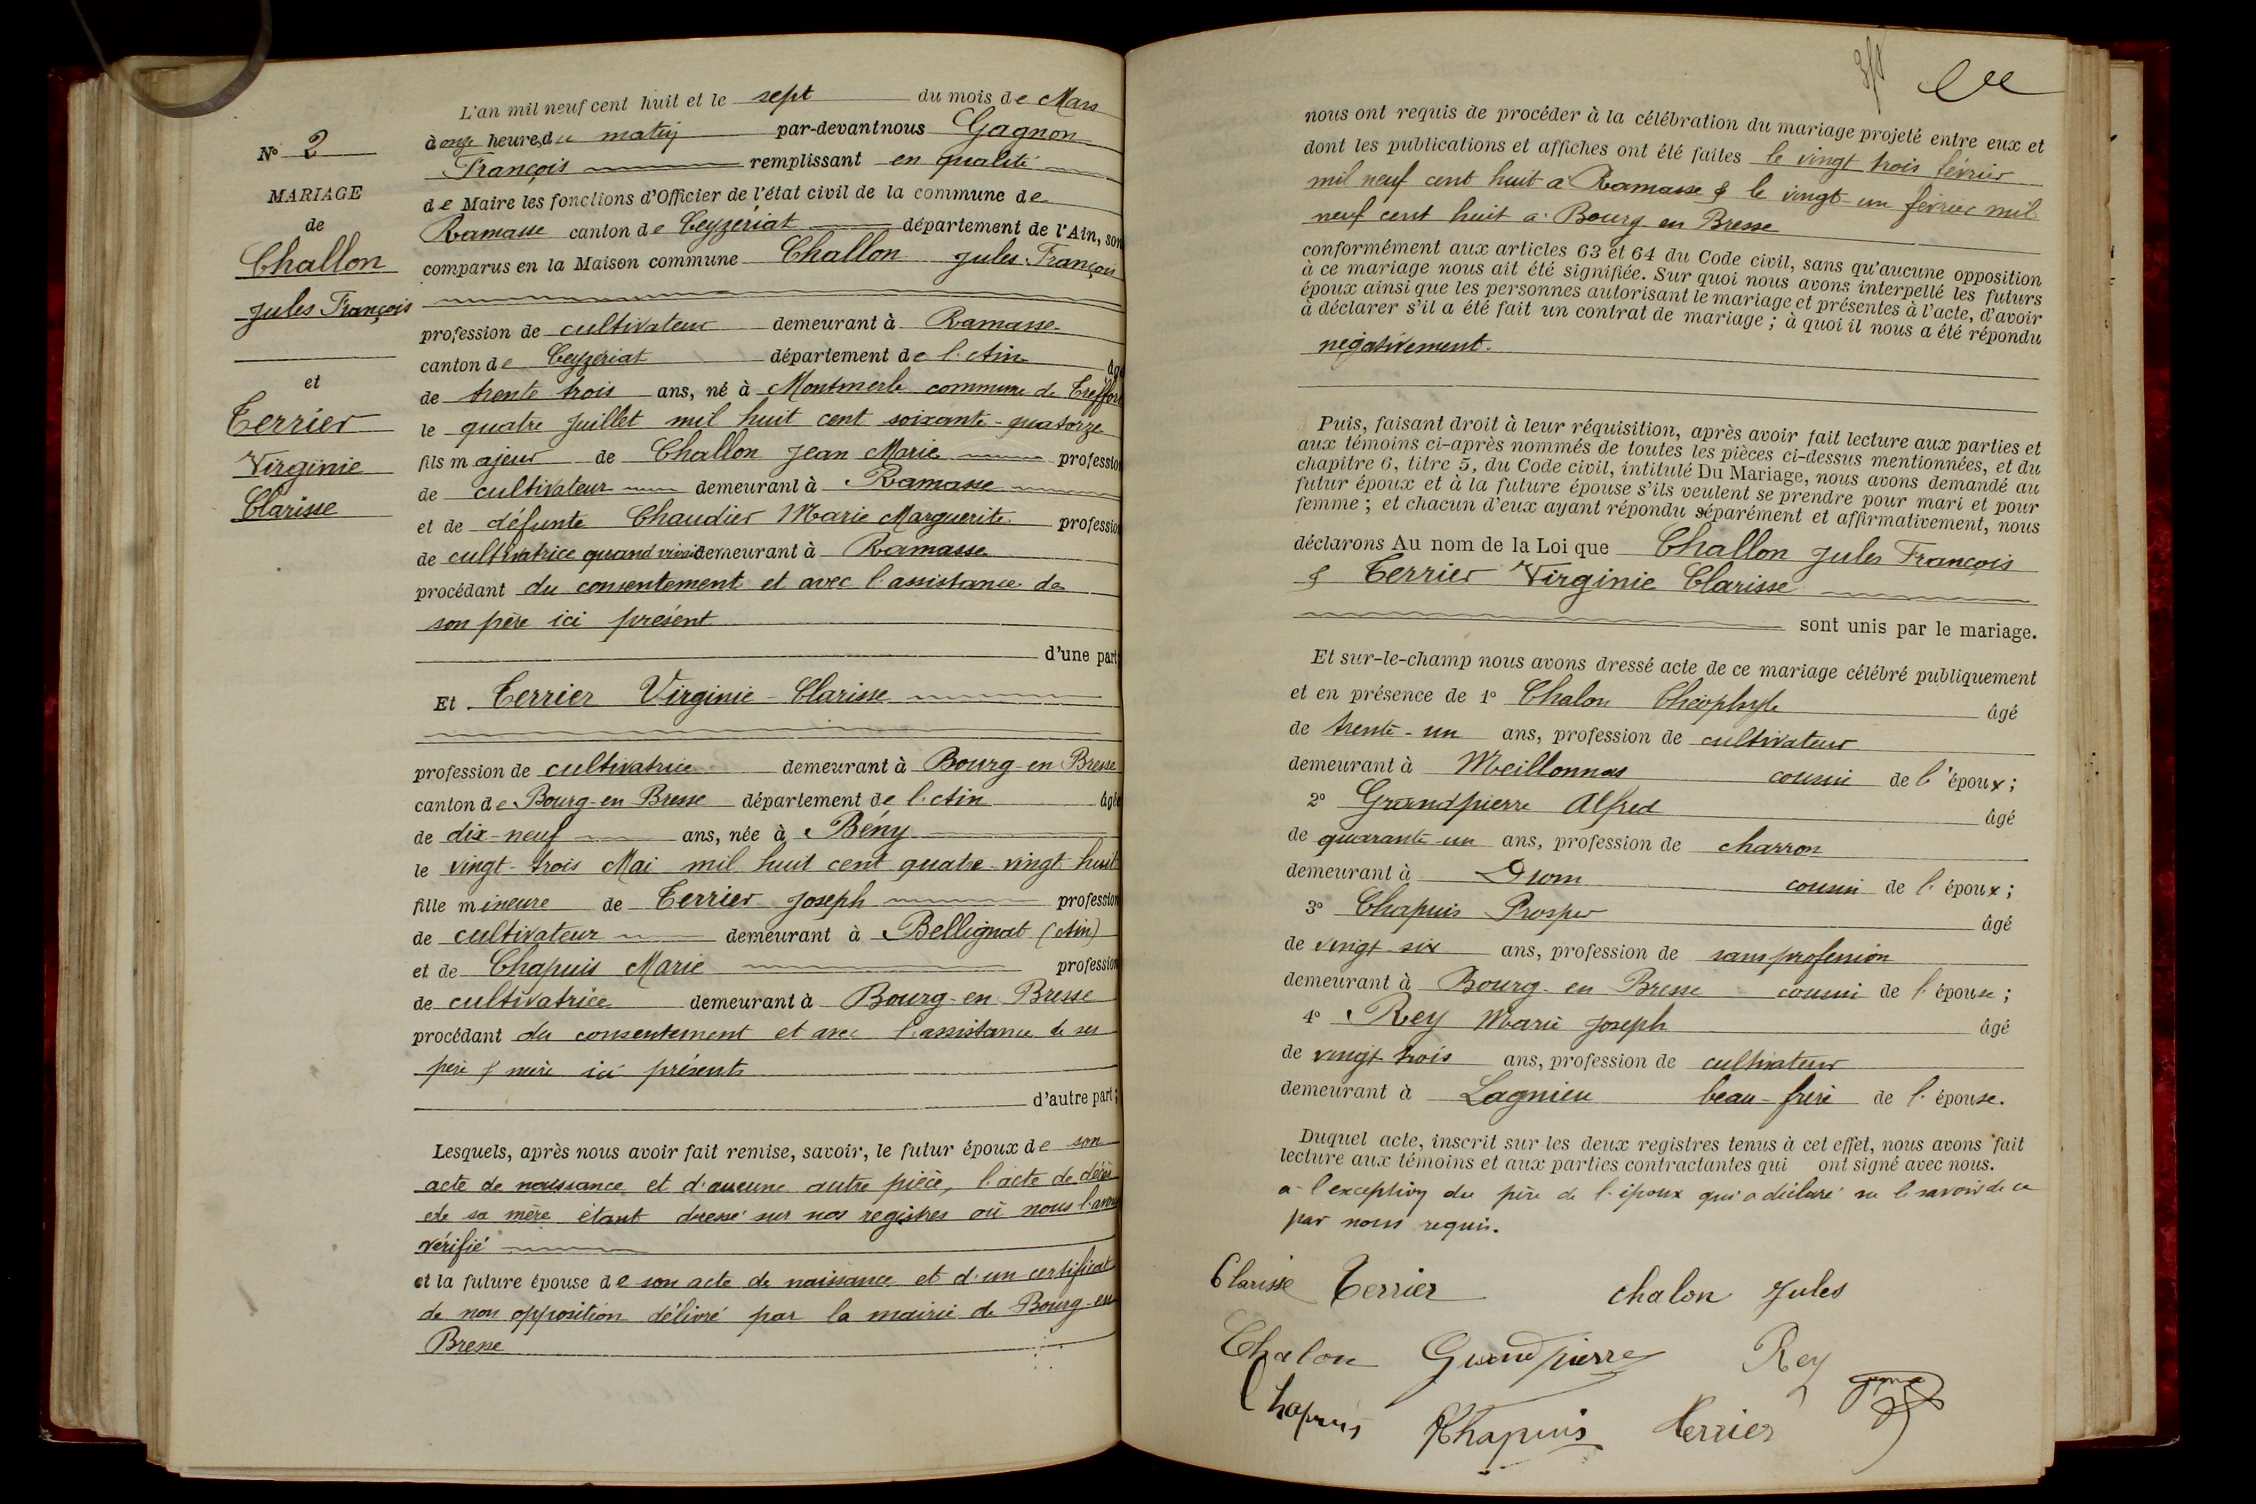 N° 2
MARIAGE
de
Challon
Jules François
et
Terrier
Virginie
Clarisse
L'an mil neuf cent huit et le sept du mois de Mars
à onze heures du matin par-devant nous Gagnon
François remplissant en qualité
de Maire les fonctions d'Officier de l'état civil de la commune de
Ramasse canton de Ceyzériat département de l'Ain, son
comparus en la Maison commune Challon Jules François
profession de cultivateur demeurant à Ramasse
canton de Ceyzériat département de l'Ain âgé
de trente trois ans, né à Montmerle commune de Treffort
le quatre Juillet mil huit cent soixante-quatorze
fils majeur de Challon Jean Marie profession
de cultivateur demeurant à Ramasse
et de défunte Chaudier Marie Marguerite profession
de cultivatrice quand vivait demeurant à Ramasse
procédant du consentement et avec l'assistance de
son père ici présent
d'une part;
Et Terrier Virginie Clarisse
profession de cultivatrice demeurant à Bourg-en Bresse
canton de Bourg-en Bresse département de l'Ain âgée
de dix-neuf ans, née à Bény
le vingt-trois Mai mil huit cent quatre-vingt-huit
fille mineure de Terrier Joseph profession
de cultivateur demeurant à Bellignat (Ain)
et de Chapuis Marie profession
de cultivatrice demeurant à Bourg-en-Bresse
procédant du consentement et avec l'assistance de ses
père & mère ici présents
d'autre part;
Lesquels, après nous avoir fait remise, savoir, le futur époux de son
acte de naissance et d'aucune autre pièce, l'acte de décès
de sa mère étant dressé sur nos registres où nous l'avons
vérifié
et la future épouse de son acte de naissance et d'un certificat
de non opposition délivré par la mairie de Bourg-en
Bresse
nous ont requis de procéder à la célébration du mariage projeté entre eux et
dont les publications et affiches ont été faites le vingt trois février
mil neuf cent huit à Ramasse & le vingt-un février mil
neuf cent huit à Bourg en Bresse
conformément aux articles 63 et 64 du Code civil, sans qu'aucune opposition
à ce mariage nous ait été signifiée. Sur quoi nous avons interpellé les futurs
époux ainsi que les personnes autorisant le mariage et présentes à l'acte, d'avoir
à déclarer s'il a été fait un contrat de mariage; à quoi il nous a été répondu
négativement.
Puis, faisant droit à leur réquisition, après avoir fait lecture aux parties et
aux témoins ci-après nommés de toutes les pièces ci-dessus mentionnées, et du
chapitre 6, titre 5, du Code civil, intitulé Du Mariage, nous avons demandé au
futur époux et à la future épouse s'ils veulent se prendre pour mari et pour
femme; et chacun d'eux ayant répondu séparément et affirmativement, nous
déclarons Au nom de la Loi que Challon Jules François
& Terrier Virginie Clarisse
sont unis par le mariage.
Et sur-le-champ nous avons dressé acte de ce mariage célébré publiquement
et en présence de 1° Chalon Théophyle âgé
de trente-un ans, profession de cultivateur
demeurant à Meillonnas cousin de l'époux;
2° Grandpierre Alfred âgé
de quarante-un ans, profession de charron
demeurant à Drom cousin de l'époux;
3° Chapuis Prosper âgé
de vingt six ans, profession de sans profession
demeurant à Bourg-en Bresse cousin de l'épouse;
4° Rey Marie Joseph âgé
de vingt trois ans, profession de cultivateur
demeurant à Lagnieu beau-frère de l'épouse.
Duquel acte, inscrit sur les deux registres tenus à cet effet, nous avons fait
lecture aux témoins et aux parties contractantes qui ont signé avec nous.
à l'exception du père de l'époux qui a déclaré ne le savoir de ce
par nous requis.
Clarisse Terrier chalon Jules
Chalon Grandpierre Rey
Chapuis Chapuis Terrier